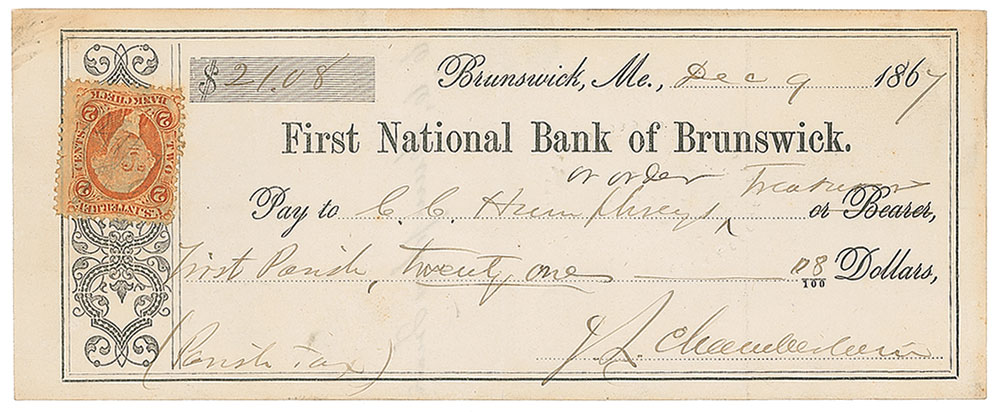 $ 21.08 Brunswick, Me., Dec 9 1867
First National Bank of Brunswick.
or order Treasurer
Pay to C. C. Humphreys, or Bearer,
First Parish, twenty one 08/100 Dollars,
(Parish Tax) J L Chamberlain
BANK CHECK
TWO CENTS
2 2
U.S. INTER. REV.